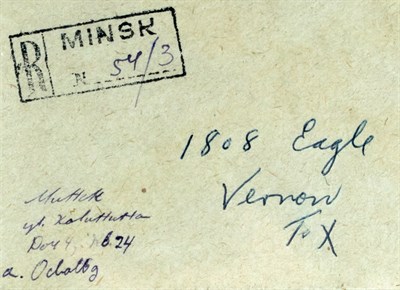 R MINSK
N 54/3
1808 Eagle
Vernon
Tx
Минск
ул. Калинина
Дом 4, кв. 24